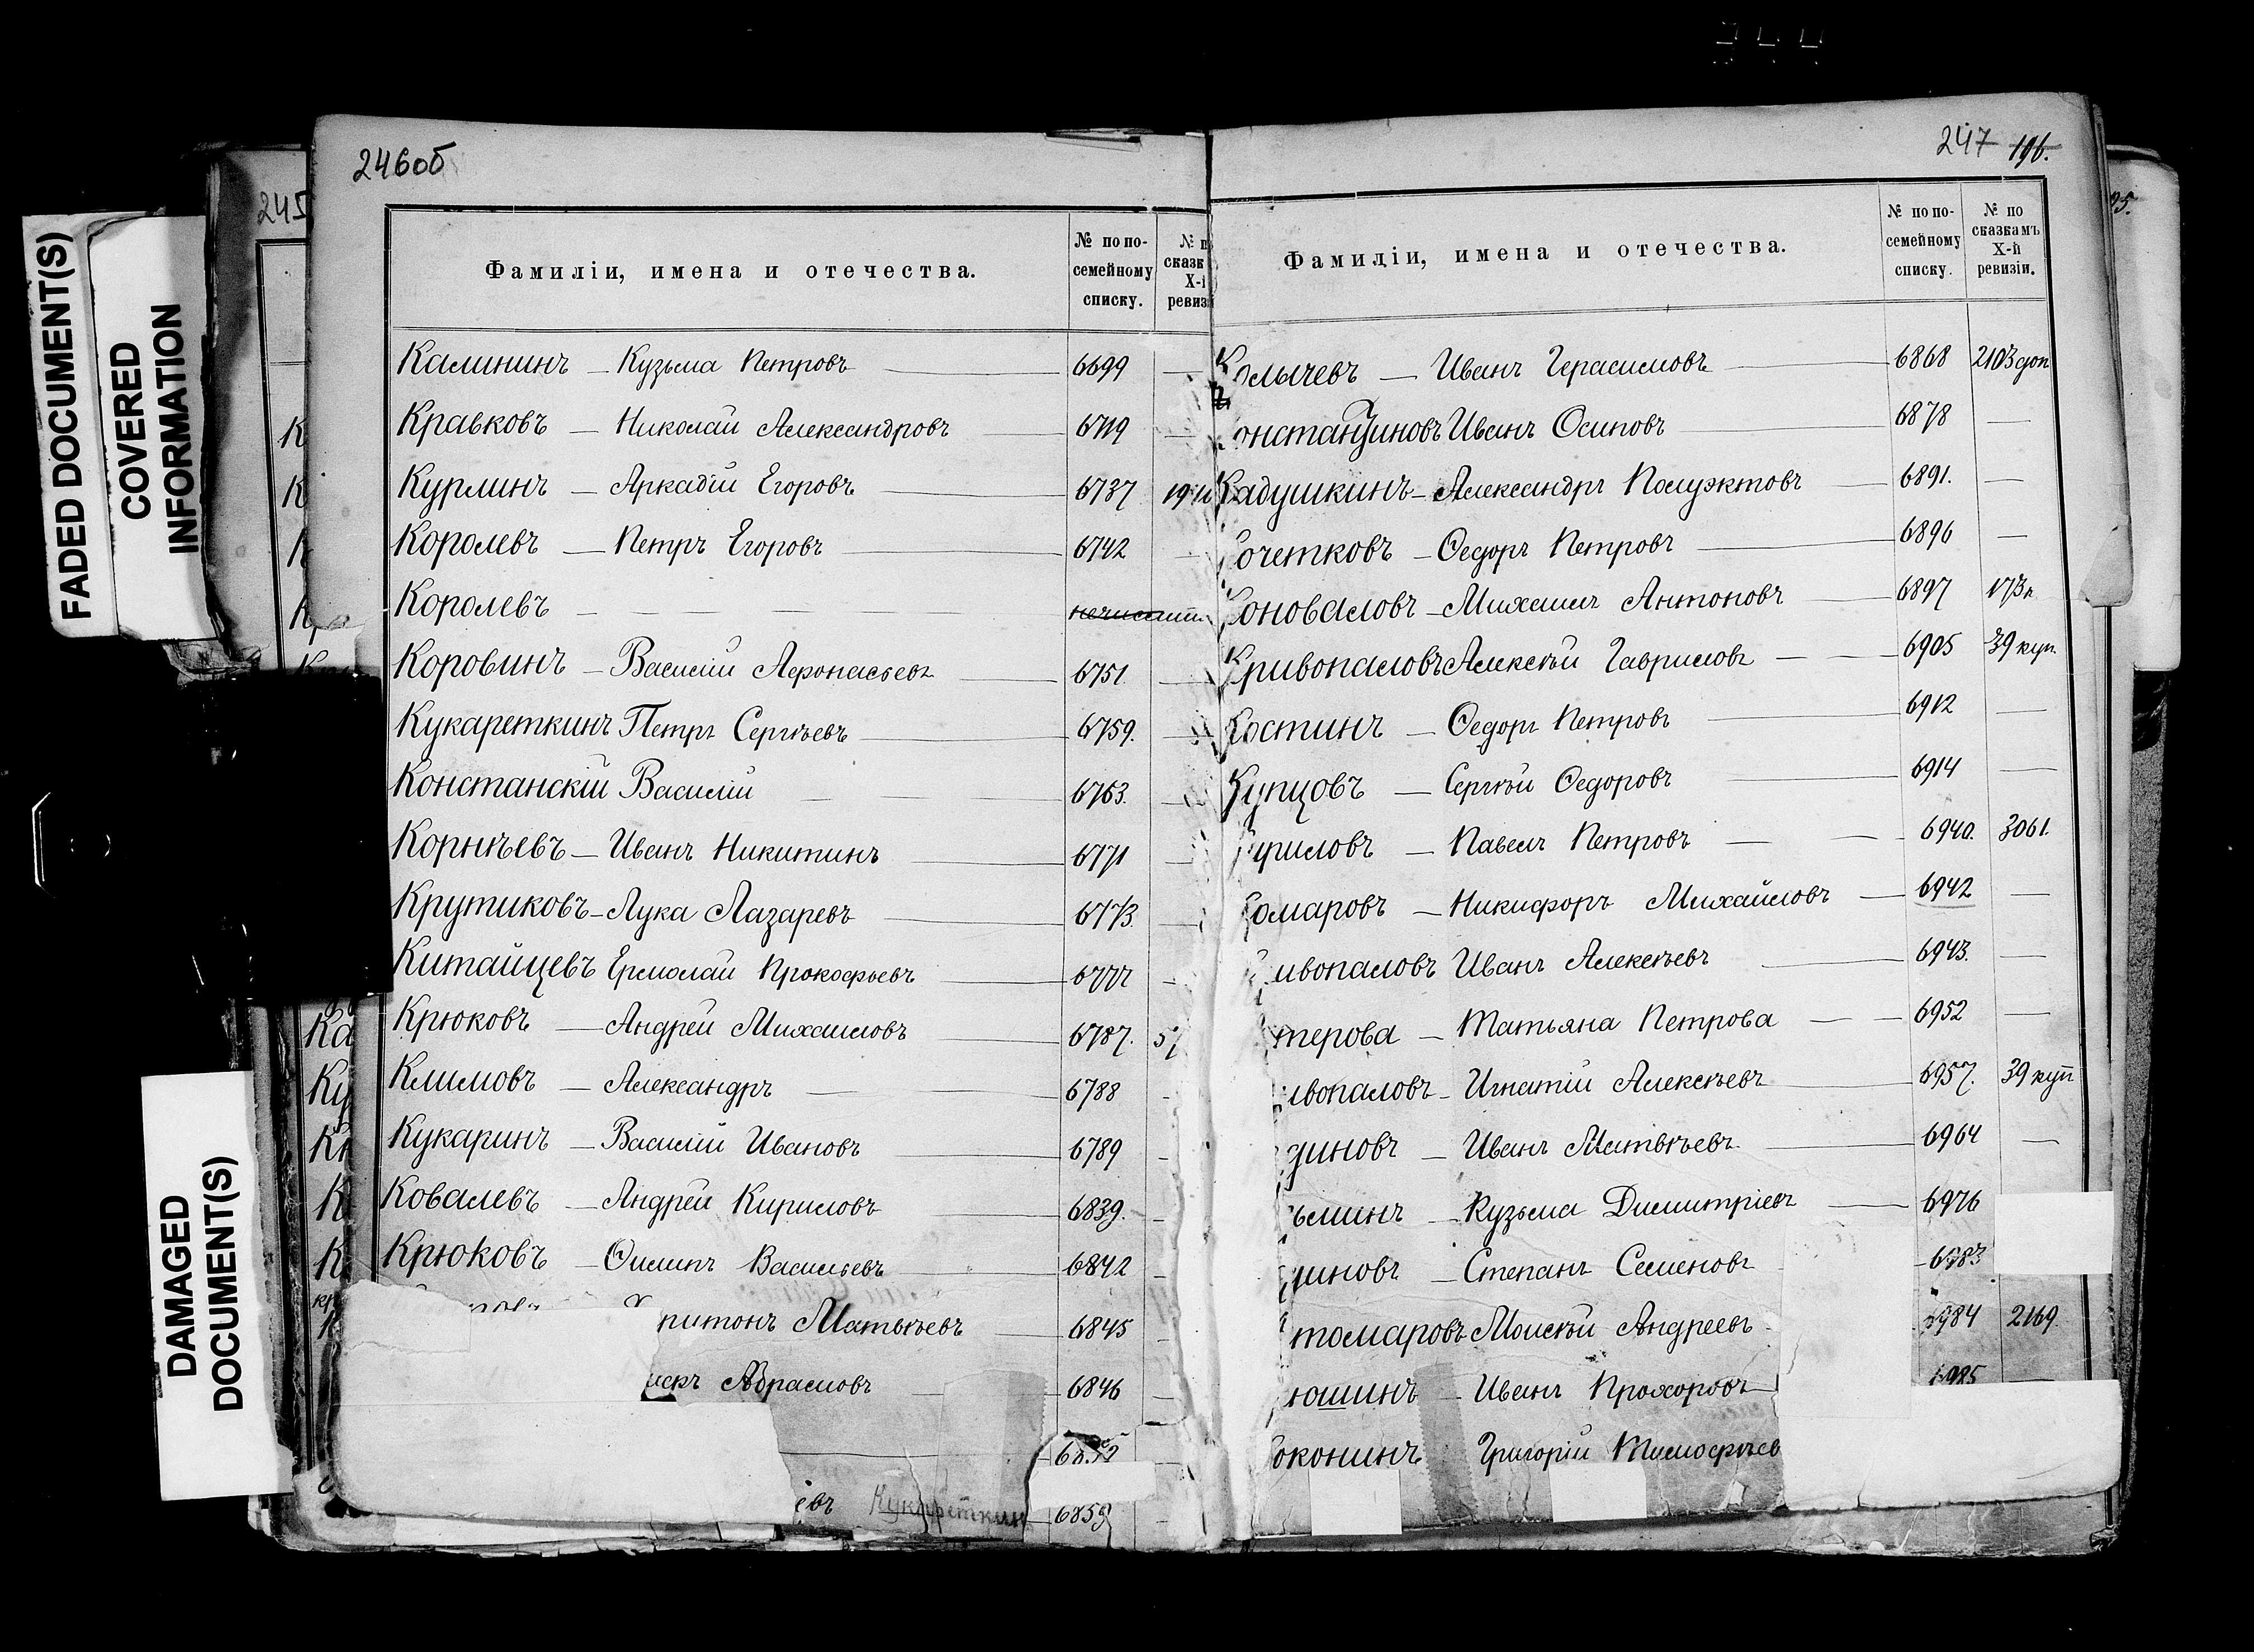 FADED DOCUMENT(S)
COVERED
INFORMATION
DAMAGED
DOCUMENT(S)
246об
Фамиліи, имена и отечества.
№ по по-
семейному
списку.
Калининъ — Кузьма Петровъ — 6699 —
Кравковъ — Николай Александровъ — 6719 —
Курлинъ — Аркадій Егоровъ — 6737
Королевъ — Петръ Егоровъ — 6742 —
Королевъ — — — —
Коровинъ — Василій Афонасьевъ — 6751 —
Кукареткинъ Петръ Сергѣевъ — 6759. —
Констанскій Василій — — 6763. —
Корнѣевъ — Иванъ Никитинъ — 6771 —
Крутиковъ — Лука Лазаревъ — 6773. —
Китайцевъ Ермолай Прокофьевъ — 6777 —
Крюковъ — Андрей Михаиловъ — 6787. 57
Климовъ — Александръ — — 6788 -
Кукаринъ — Василій Ивановъ — 6789 -
Ковалевъ — Андрей Кириловъ — 6839. -
Крюковъ — Филипъ Васильевъ — 6842 -
ритонъ Матвѣевъ — 6845 -
Абрамовъ — 6846 —
евъ Кукареткин — 6859
247 196.
Фамиліи, имена и отечества.
№ по по-
семейному
списку.
№ по
сказкамъ
X-й
ревизіи.
Колычевъ — Иванъ Герасимовъ — 6868 2103 доп
Константиновъ Иванъ Осиповъ — 6878 —
Кадушкинъ — Александръ Полуэктовъ — 6891. —
Кочетковъ — Федоръ Петровъ — 6896 —
Коноваловъ — Михаилъ Антоновъ — 6897 173
Кривопаловъ Алексѣй Гавриловъ — — 6905 39 куп.
Костинъ — Федоръ Петровъ — 6912 —
Купцовъ — Сергѣй Федоровъ — 6914 —
уриловъ — Павелъ Петровъ — — 6940. 3061.
Комаровъ — Никифоръ Михайловъ — 6942 —
ивопаловъ Иванъ Алексѣевъ — 6943. —
терова — Татьяна Петрова — — 6952 —
ивопаловъ — Игнатій Алексѣевъ — 6957. 39 куп
зиновъ — Иванъ Матвѣевъ — 6964 —
ьминъ — Кузьма Димитріевъ — 6976
иновъ — Степанъ Семеновъ 6983
томаровъ Моисѣй Андреевъ 6984 2169.
юшинъ — Иванъ Прохоровъ 6985 —
оконинъ Григорій Тимофѣев